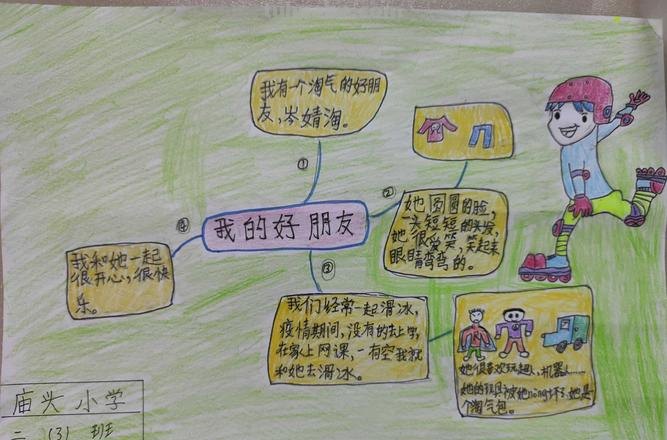 我有一个淘气的好朋
友,岑婧淘。
①
②
她圆圆的脸,
一头短短的头发,
她很爱笑,笑起来
眼睛弯弯的。
④
我的好朋友
我和她一起
很开心,很快
乐。
③
我们经常一起滑冰,
疫情期间,没有的去上学,
在家上网课,一有空我就
和她去滑冰。
她很喜欢玩超人,机器人……
她的玩具被她nòng坏了,她是
个淘气包。
庙头小学
二(3)班